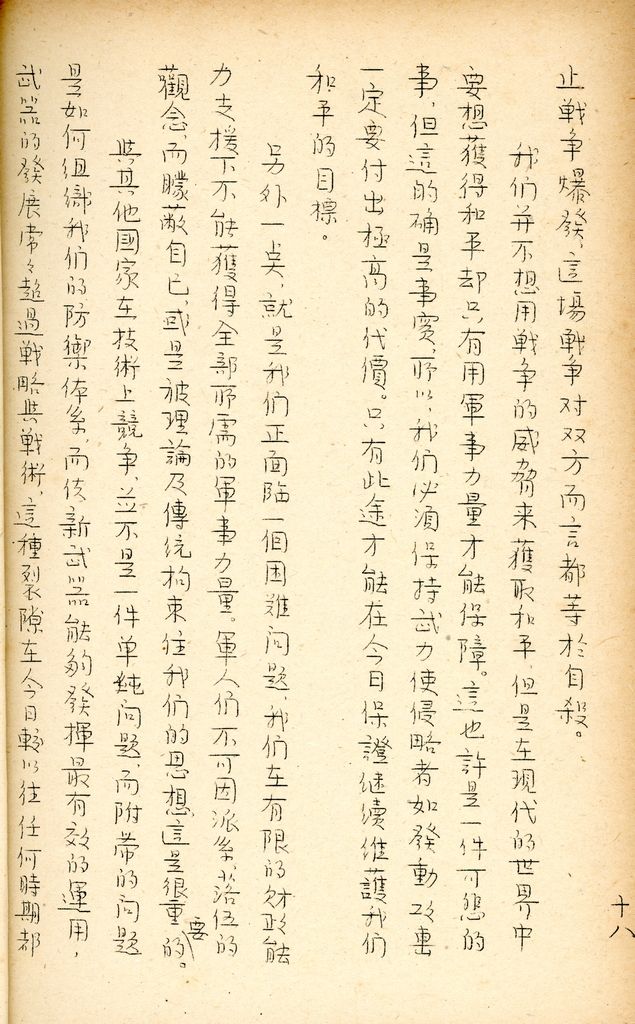 十八
止戰争爆發,這場戰争对双方而言都等於自殺。
我们并不想用戰争的威脅来獲取和平,但是在現代的世界中
要想獲得和平却只有用軍事力量才能保障。這也許是一件可悲的
事,但這的确是事實,所以,我们必須保持武力使侵略者如發動攻击
一定要付出極高的代價。只有此途才能在今日保證継续維護我们
和平的目標。
另外一点,就是我们正面臨一個困难问题,我们在有限的財政能
力支援下不能獲得全部所需的軍事力量。軍人们不可因派系、落伍的
觀念,而矇蔽自己,或是被理論及傳统拘束住我们的思想,這是很重要的。
與其他國家在技術上競争,並不是一件单純问题,而附带的问题
是如何组織我们的防禦体系,而使新武器能夠發揮最有效的運用,
武器的發展常々超過戰略與戰術,這種裂隙在今日較以往任何時期都